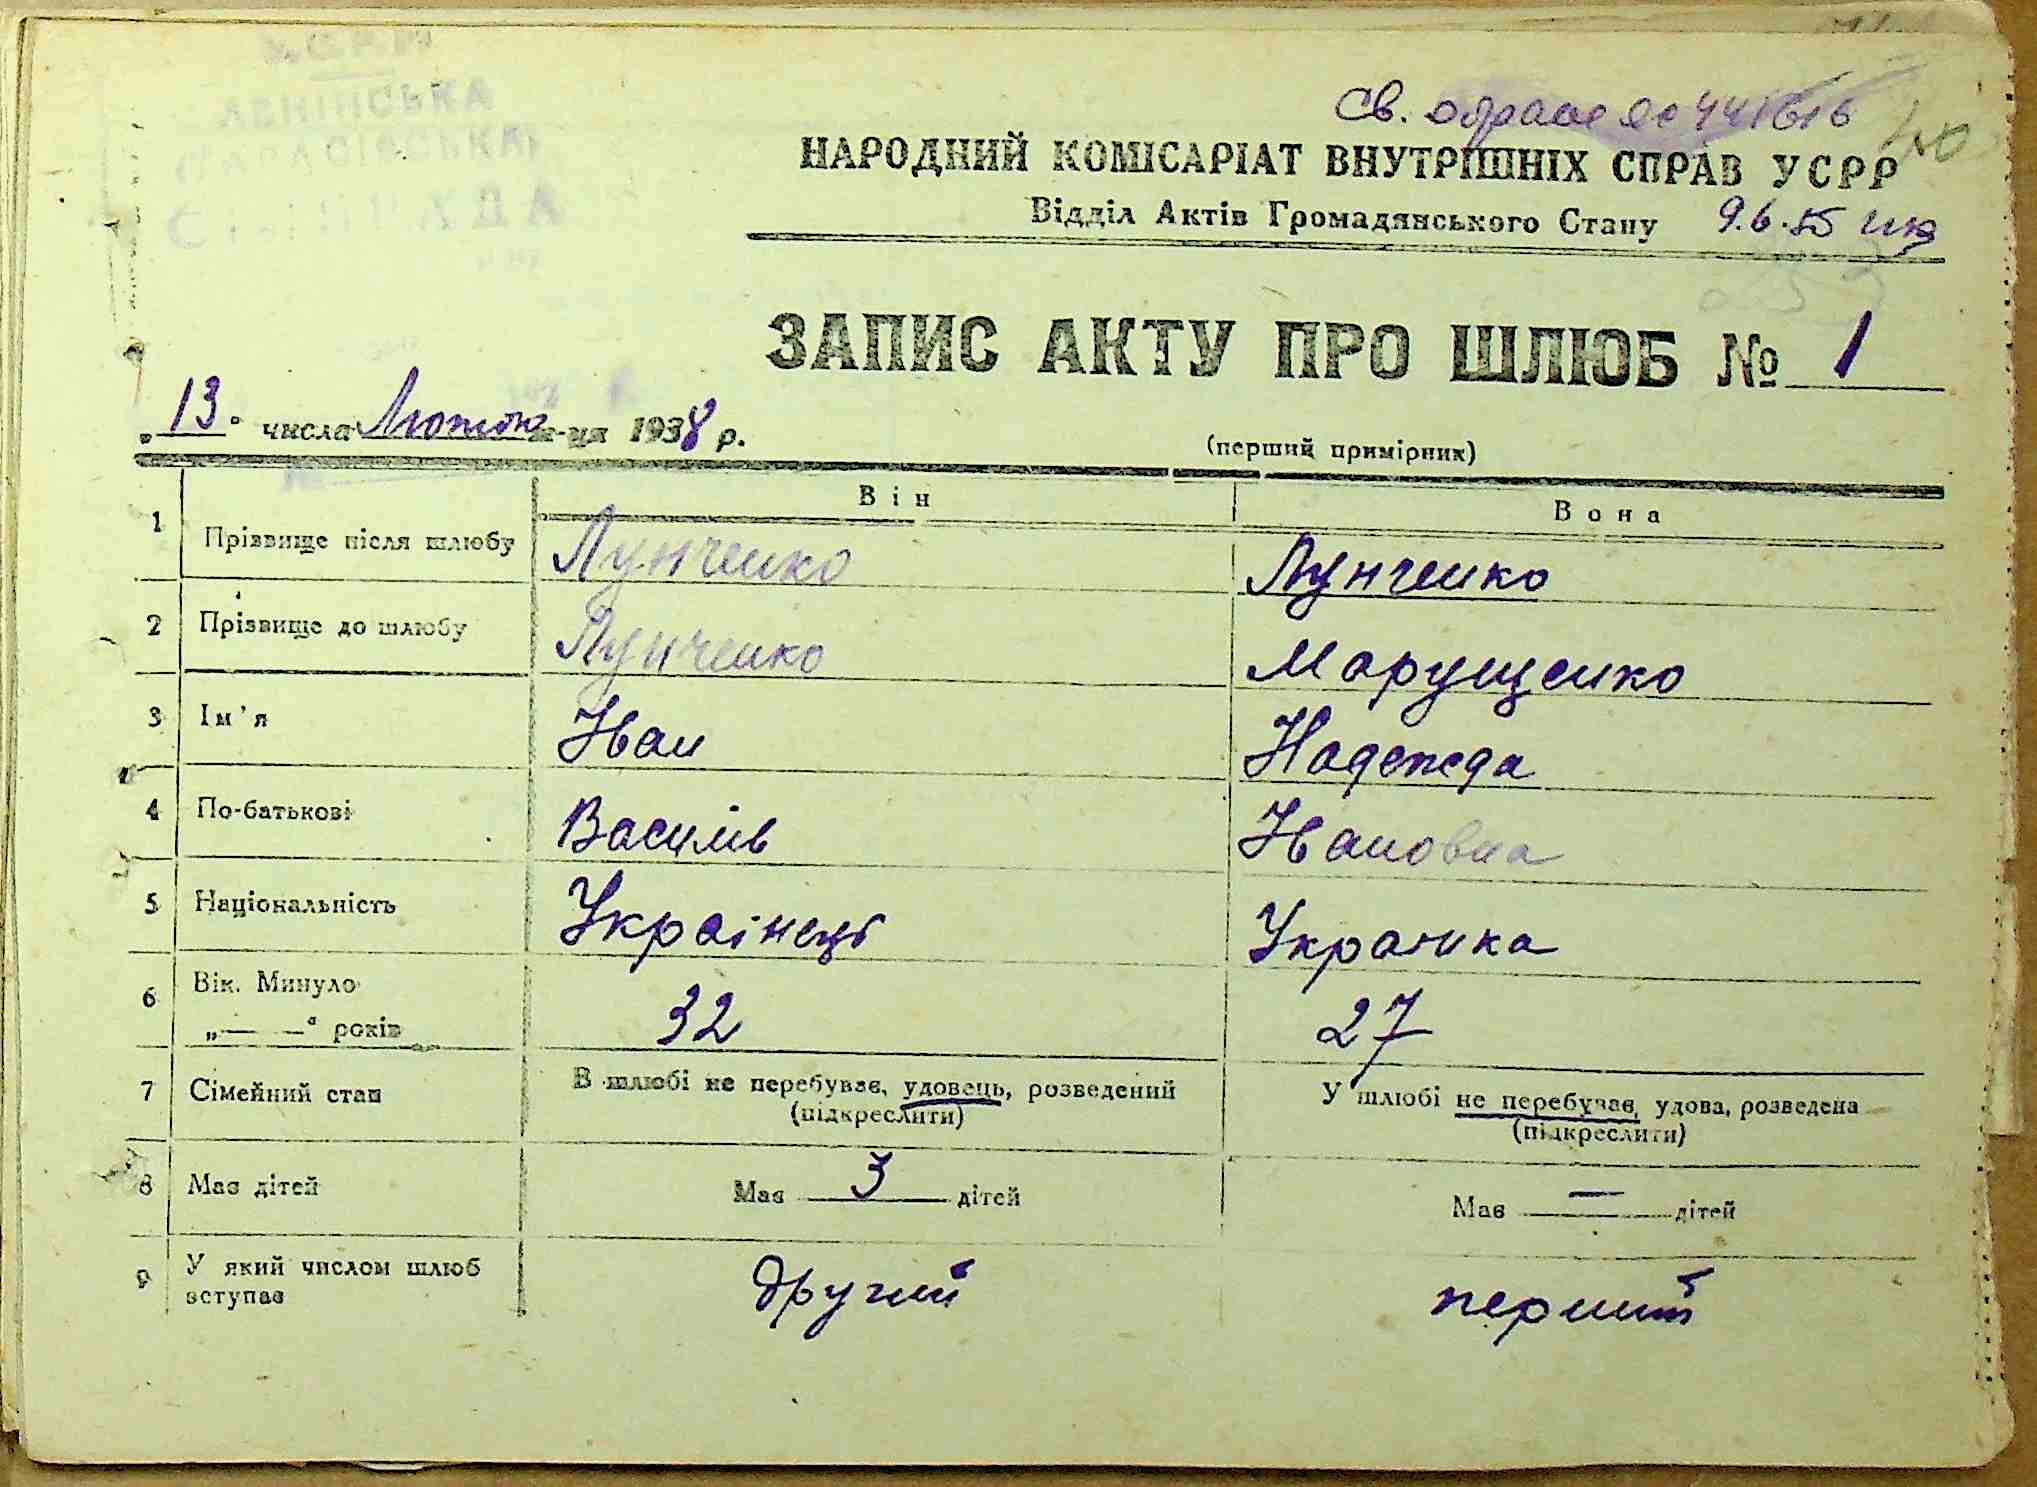 ЛЕНІНСЬКА
Св.
НАРОДНИЙ КОМІСАРІАТ ВНУТРІШНІХ СПРАВ УСРР
Відділ Актів Громадянського Стану 9.6.55
ЗАПИС АКТУ ПРО ШЛЮБ № 1
„13" числа Лютого м-ця 1938 р.
(перший примірник)
Він Вона
1 Прізвище після шлюбу Лунченко Лунченко
2 Прізвище до шлюбу Лунченко Марущенко
3 Ім'я Іван Надежда
4 По-батькові Василів Івановна
5 Національність Українець Українка
6 Вік. Минуло
„— —" років 32 27
7 Сімейний стан В шлюбі не перебував, удовець, розведений У шлюбі не перебував, удова, розведена
(підкреслити) (підкреслити)
8 Має дітей Має 3 дітей Має — дітей
9 У який числом шлюб
вступає другий перший